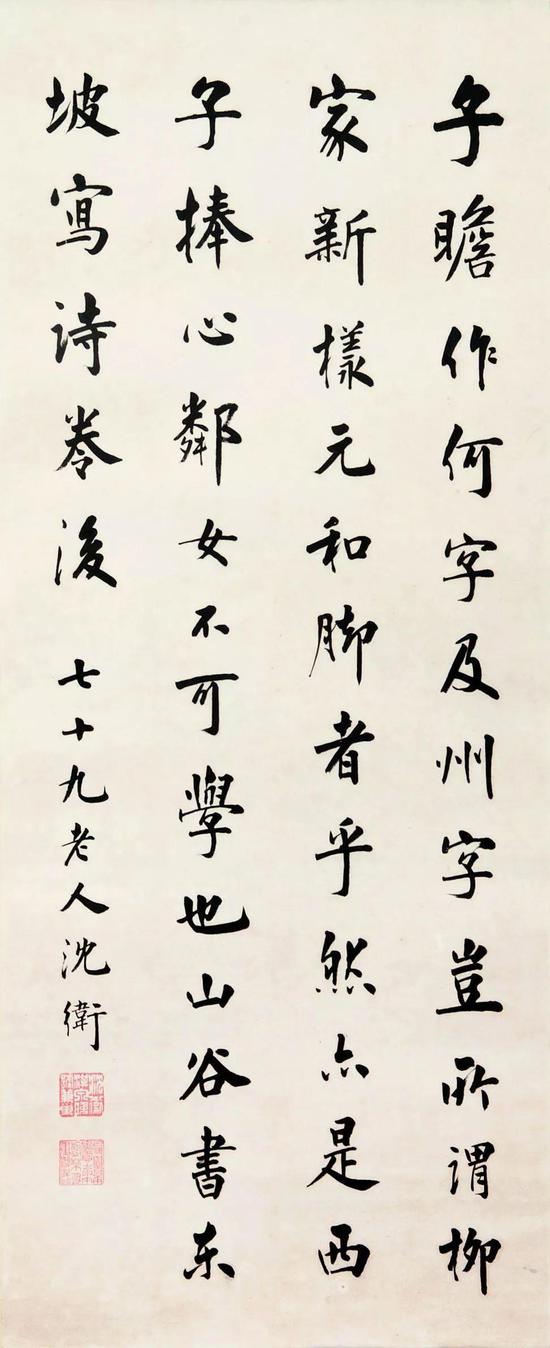 子瞻作何字及州字豈所謂柳
家新樣元和脚者乎然亦是西
子捧心鄰女不可學也山谷書东
坡寫詩卷後
七十九老人沈衛